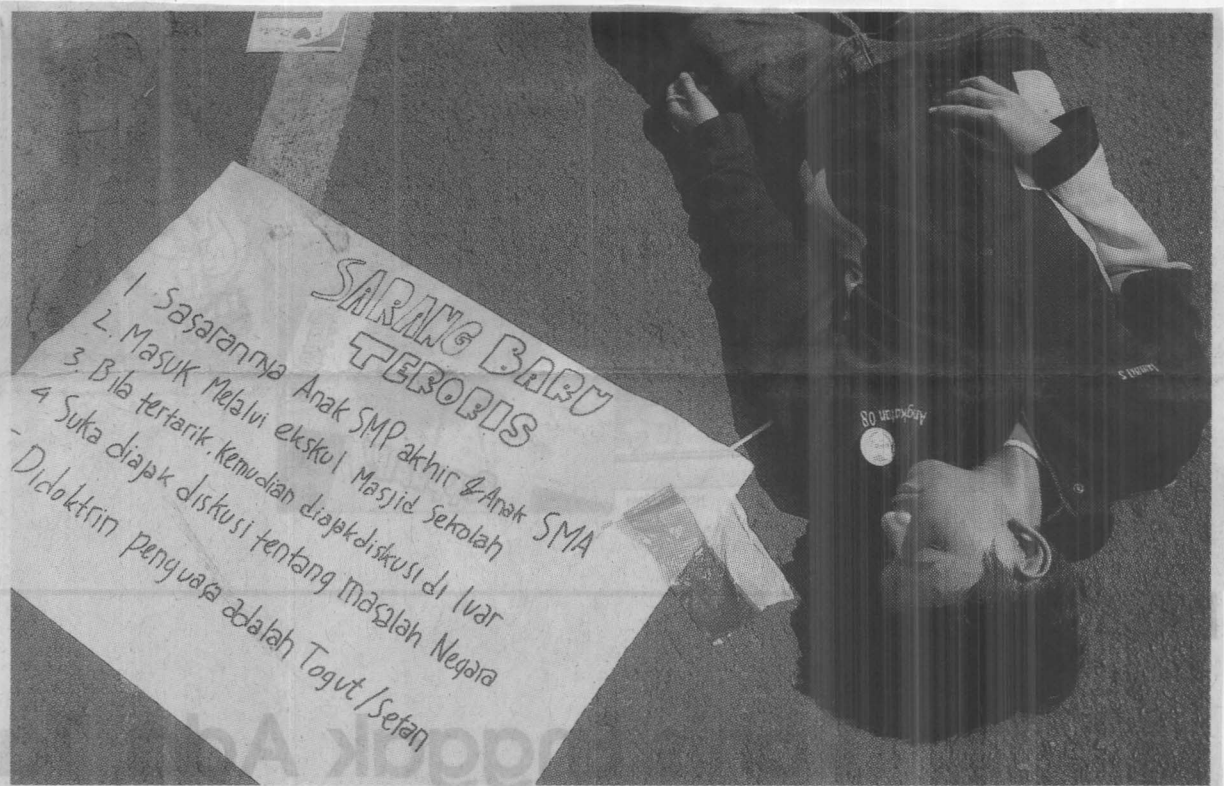 SARANG BARU
TERORIS
1. Sasarannya Anak SMP akhir & Anak SMA
2. Masuk Melalui ekskul Masjid Sekolah
3. Bila tertarik, Kemudian diajak diskusi di luar
4 Suka diajak diskusi tentang masalah Negara
- Didoktrin penguasa adalah Togut/Setan
Angkatan 08